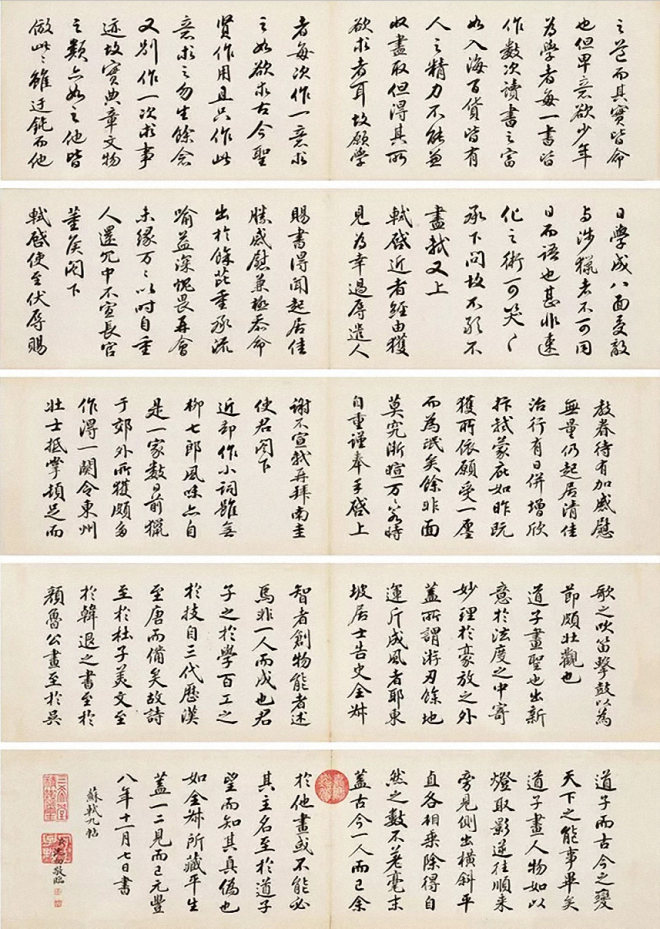 之道而其實皆命
也但卑意欲少年
為學者每一書皆
作數次讀書之富
如入海百貨皆有
人之精力不能兼
收盡取但得其所
欲求者耳故願學
者每次作一意求
之如欲求古今聖
賢作用且只作此
意求之勿生餘念
又別作一次求事
迹故實典章文物
之類亦如之他皆
倣此〻雖迂鈍而他
日學成八面受敵
与涉獵者不可同
日而語也甚非速
化之術可笑〻
承下問故不敢不
盡軾又上
軾啓近者經由獲
見為幸過辱遣人
賜書得聞起居佳
勝感慰兼極忝命
出於餘芘重承流
喻益深愧畏再會
未緣万〻以时自重
人還冗中不宣長官
董侯閤下
軾啓使至伏辱賜
教眷待有加感慰
無量仍起居清佳
治行有日併增欣
抃軾蒙庇如昨既
獲所依願受一廛
而為氓矣餘非面
莫究漸暄万〻若時
自重謹奉手啓上
謝不宣軾再拜南圭
使君閤下
近却作小詞雖無
柳七郎風味亦自
是一家數日前獵
于郊外所獲頗多
作得一闋令東州
壯士抵掌頓足而
歌之吹笛擊鼓以為
節頗壯觀也
道子畫聖也出新
意於法度之中寄
妙理於豪放之外
蓋所謂游刃餘地
運斤成風者耶東
坡居士告史全叔
智者創物能者述
焉非一人而成也君
子之於學百工之
於技自三代歷漢
至唐而備矣故詩
至於杜子美文至
於韓退之書至於
顏魯公畫至於吳
道子而古今之變
天下之能事畢矣
道子畫人物如以
燈取影逆往順來
旁見側出橫斜平
直各相乘除得自
然之數不差毫末
蓋古今一人而已余
於他畫或不能必
其主名至於道子
望而知其真偽也
如全叔所藏平生
蓋一二見而已元豐
八年十一月七日書
蘇軾九帖
敬臨